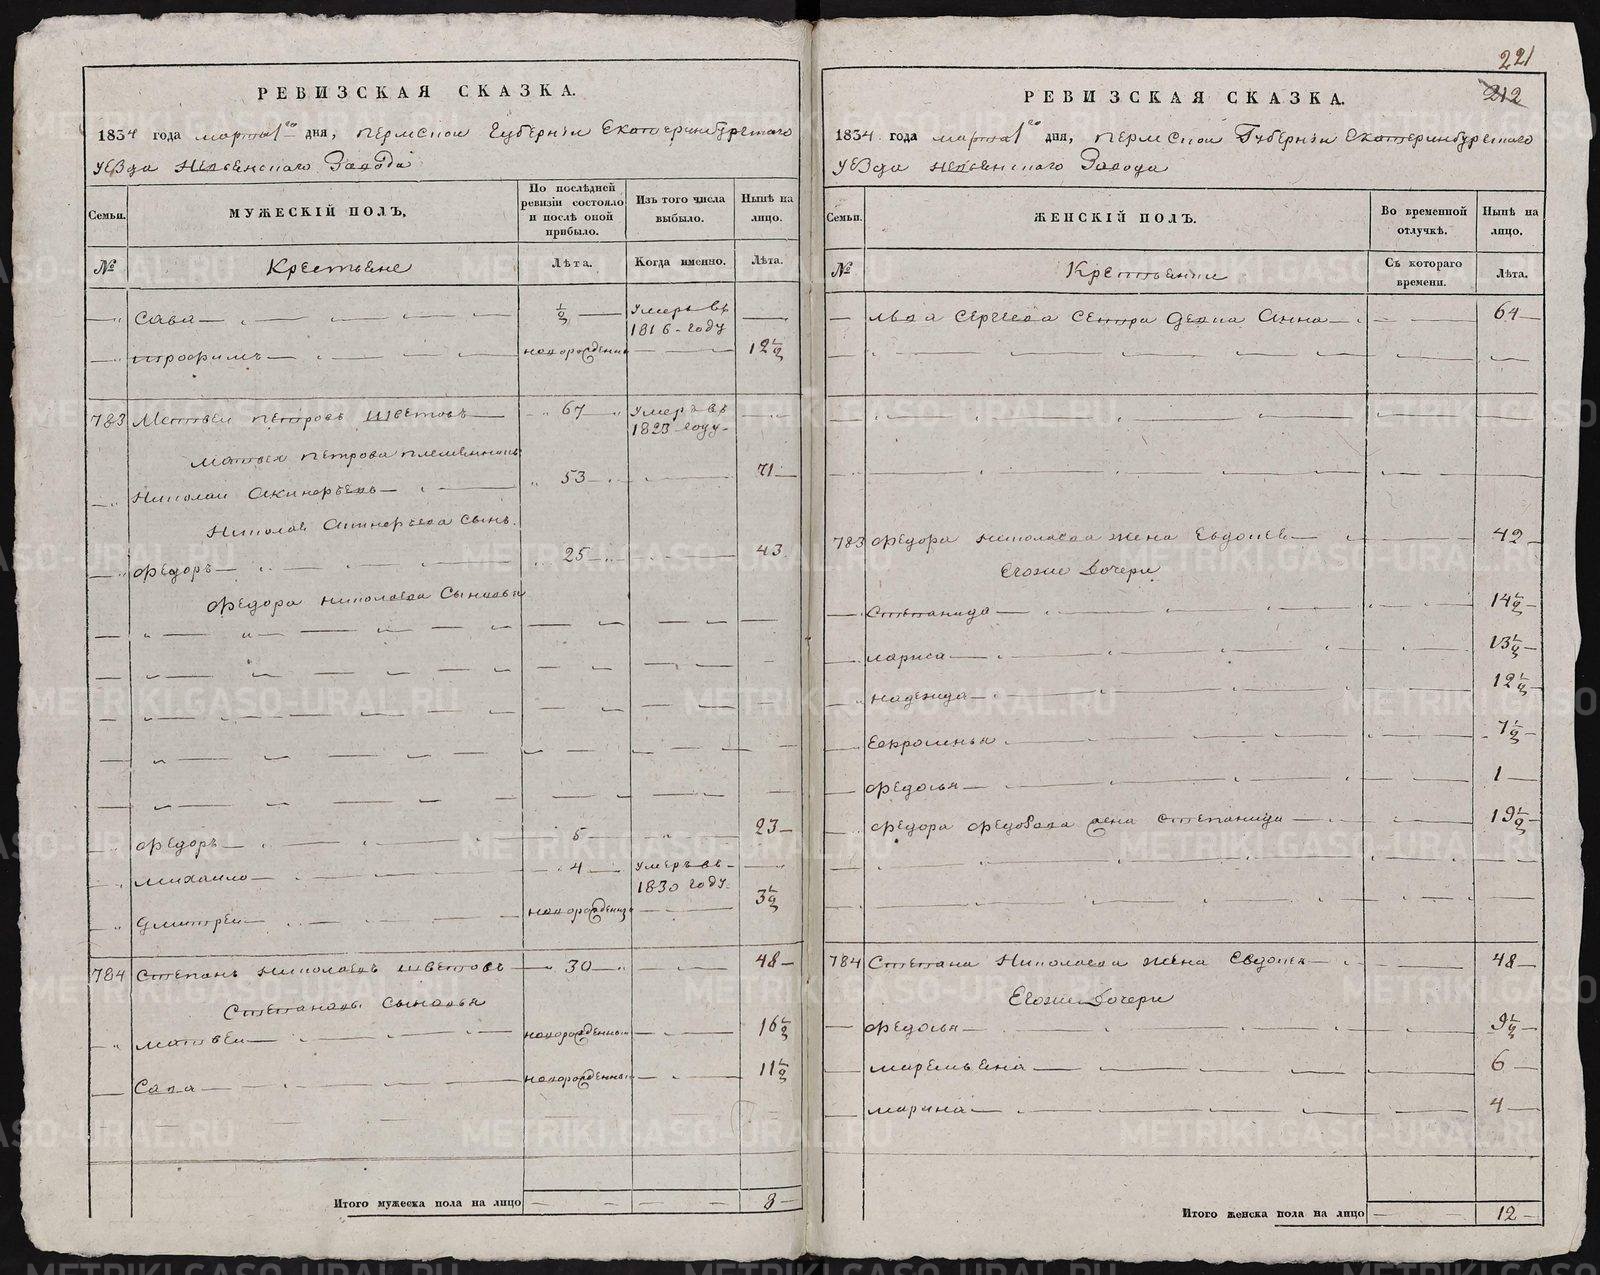 221
212
РЕВИЗСКАЯ СКАЗКА.
1834 года марта 1го дня, Пермской Губернiи Екатеринбургскаго
уезда Невьенскаго Завода
Семьи. МУЖЕСКIЙ ПОЛЪ, По послѣдней ревизiи состояло и послѣ оной прибыло. Изъ того числа выбыло. Нынѣ на лицо.
№ Крестьяне Лѣта. Когда именно. Лѣта.
Сава 1/2 умеръ въ 1816 году
Трофимъ новорожденны 12 1/2
783 Матвеи Петровъ Шветовъ 67 умеръ въ 1823 году
Матвея Петрова племянникъ
Николаи 53 71
Николая сынъ
Федоръ 25 43
Федора Николаева сыновья
Федоръ 5 23
Михаило 4 умеръ въ 1830 году
Дмитреи новорожденны 3 1/2
784 Степанъ Николаевъ Шветовъ 30 48
Степановы сыновья
Матвеи новорожденныи 16 1/2
Сава новорожденныи 11 1/2
Итого мужеска пола на лицо 8
РЕВИЗСКАЯ СКАЗКА.
1834 года марта 1го дня, Пермской Губернiи Екатеринбургскаго
уезда Невьенскаго Завода
Семьи. ЖЕНСКIЙ ПОЛЪ. Во временной отлучкѣ. Нынѣ на лицо.
№ Съ котораго времени. Лѣта.
Льва Сергеева сестра девка Анна 64
783 Федора Николаева жена Евдокея 42
Егоже дочери
Степанида 14 1/2
Лариса 13 1/2
Надежида 12 1/2
Ефросинья 7 1/2
Федосья 1
Федора Федорова жена Степанида 19 1/2
784 Степана Николаева жена Евдокея 48
Егоже дочери
Федосья 9 1/2
Маремьяна 6
Марина 4
Итого женска пола на лицо 12
METRIKI.GASO-URAL.RU